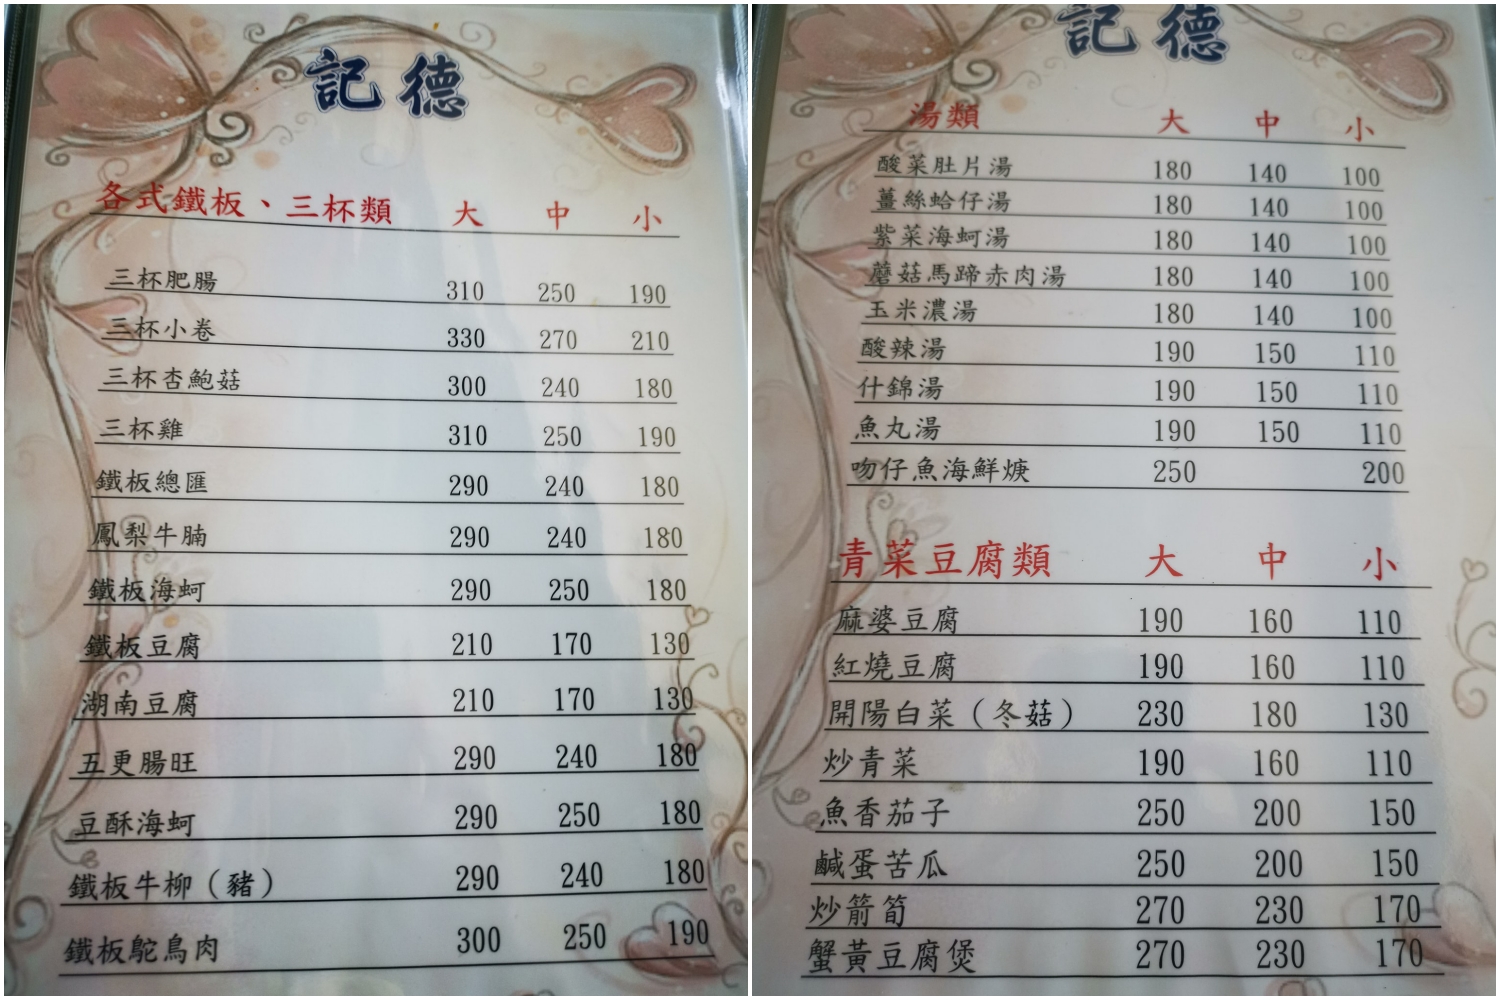 記德
各式鐵板、三杯類 大 中 小
三杯肥腸 310 250 190
三杯小卷 330 270 210
三杯杏鮑菇 300 240 180
三杯雞 310 250 190
鐵板總匯 290 240 180
鳳梨牛腩 290 240 180
鐵板海蚵 290 250 180
鐵板豆腐 210 170 130
湖南豆腐 210 170 130
五更腸旺 290 240 180
豆酥海蚵 290 250 180
鐵板牛柳（豬） 290 240 180
鐵板鴕鳥肉 300 250 190
記德
湯類 大 中 小
酸菜肚片湯 180 140 100
薑絲蛤仔湯 180 140 100
紫菜海蚵湯 180 140 100
蘑菇馬蹄赤肉湯 180 140 100
玉米濃湯 180 140 100
酸辣湯 190 150 110
什錦湯 190 150 110
魚丸湯 190 150 110
吻仔魚海鮮焿 250 200
青菜豆腐類 大 中 小
麻婆豆腐 190 160 110
紅燒豆腐 190 160 110
開陽白菜（冬菇） 230 180 130
炒青菜 190 160 110
魚香茄子 250 200 150
鹹蛋苦瓜 250 200 150
炒箭筍 270 230 170
蟹黃豆腐煲 270 230 170